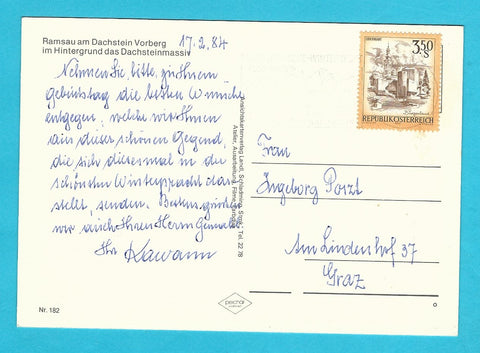 Ramsau am Dachstein Vorberg
im Hintergrund das Dachsteinmassiv
17.2.84
Nehmen Sie, bitte, zu Ihrem
Geburtstag die besten Wünsche
entgegen, welche wir Ihnen
aus dieser schönen Gegend,
die sich diesesmal in der
schönsten Winterpracht dar-
stellt, senden. Bestens grüßen
wir auch Ihren Herrn Gemahl
Ihr
Nr. 182
Ansichtskartenverlag Landl, Schladming, Stmk., Tel. 22 78
3.50 S
REPUBLIK ÖSTERREICH
Frau
Ingeborg Porzt
Am Lindenhof 37
Graz